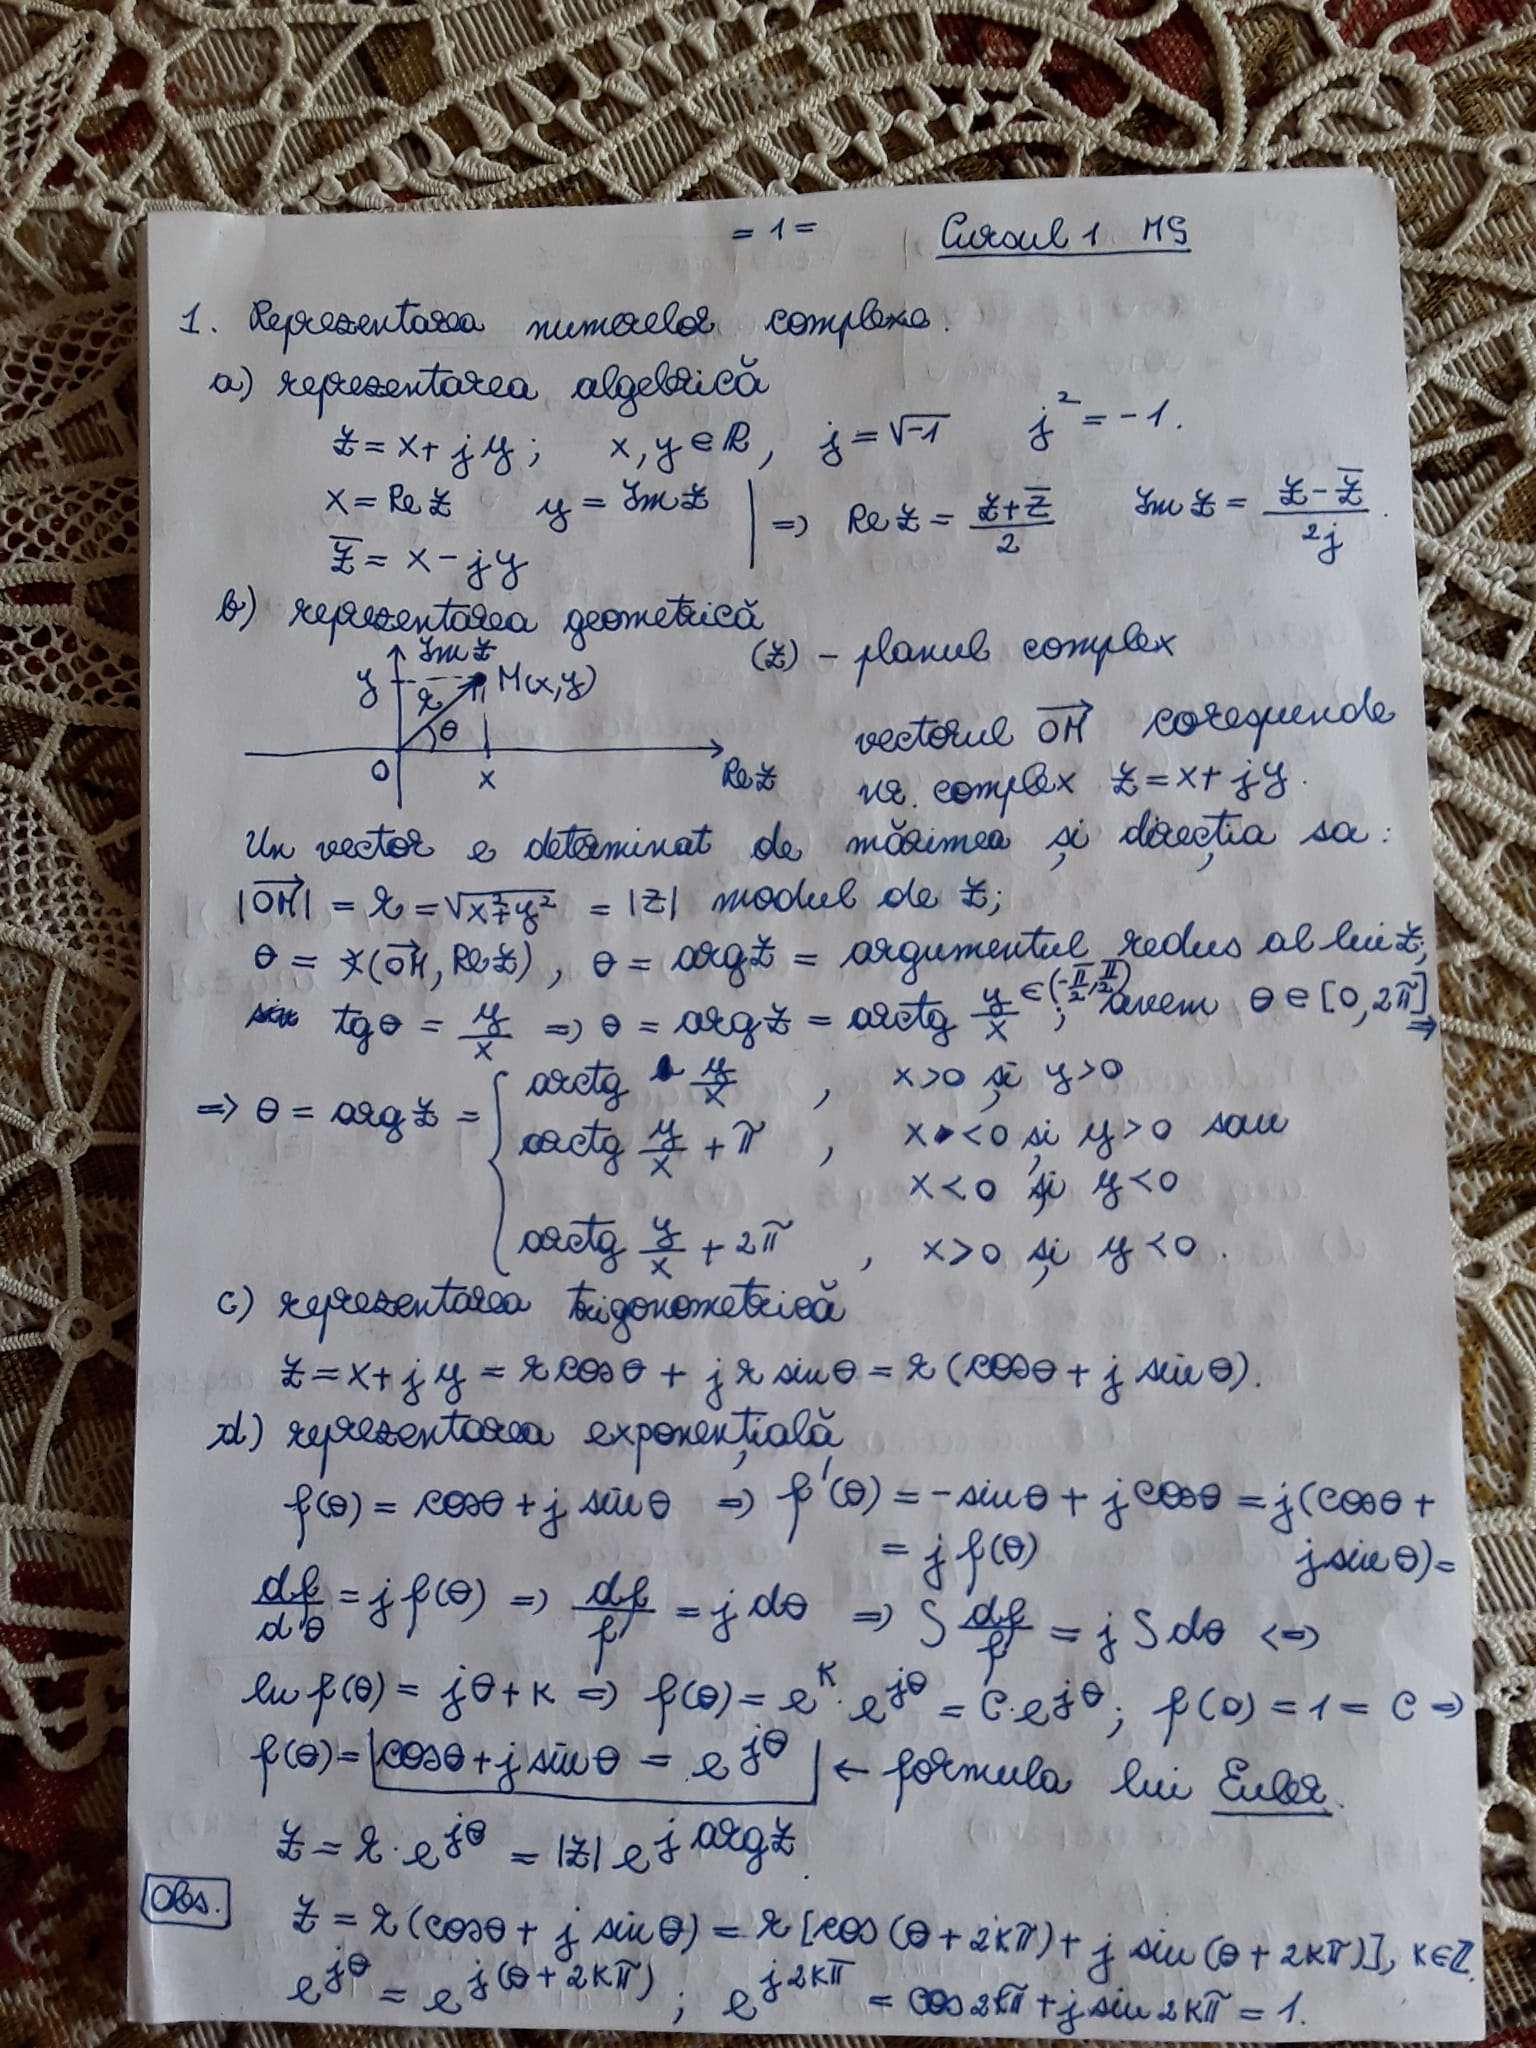 = 1 = Cursul 1 MS
1. Reprezentarea numerelor complexe.
a) reprezentarea algebrică
z = x + jy ; x, y ∈ ℝ, j = √-1 j² = -1.
x = Re z y = Im z | ⇒ Re z = (z + z̄)/2 Im z = (z - z̄)/2j.
z̄ = x - jy
b) reprezentarea geometrică
Im z (z) - planul complex
y r M(x,y)
θ vectorul OM⃗ corespunde
O x Re z nr. complex z = x + jy.
Un vector e determinat de mărimea și direcția sa:
|OM⃗| = r = √(x² + y²) = |z| modul de z;
θ = ∢(OM⃗, Re z), θ = arg z = argumentul redus al lui z;
tg θ = y/x ⇒ θ = arg z = arctg y/x ∈ (-π/2, π/2); avem θ ∈ [0, 2π] ⇒
⇒ θ = arg z = { arctg y/x , x > 0 și y > 0
arctg y/x + π , x < 0 și y > 0 sau
x < 0 și y < 0
arctg y/x + 2π , x > 0 și y < 0.
c) reprezentarea trigonometrică
z = x + jy = r cos θ + j r sin θ = r (cos θ + j sin θ).
d) reprezentarea exponențială
f(θ) = cos θ + j sin θ ⇒ f'(θ) = -sin θ + j cos θ = j(cos θ +
= j f(θ) j sin θ) =
df/dθ = j f(θ) ⇒ df/f = j dθ ⇒ ∫ df/f = j ∫ dθ ⇔
ln f(θ) = jθ + K ⇒ f(θ) = e^K · e^jθ = C · e^jθ ; f(0) = 1 = C ⇒
f(θ) = cos θ + j sin θ = e^jθ ← formula lui Euler.
z = r · e^jθ = |z| e^j arg z.
Obs. z = r (cos θ + j sin θ) = r [cos (θ + 2kπ) + j sin (θ + 2kπ)], k ∈ ℤ.
e^jθ = e^j(θ + 2kπ) ; e^j2kπ = cos 2kπ + j sin 2kπ = 1.